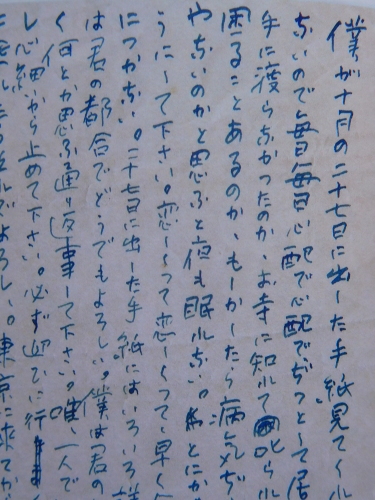 僕が十月の二十七日に出した手紙見てくれ
ないので毎日毎日心配で心配でぢつとして居
手に渡らなかつたのか、お寺に知れて叱られ
困ることあるのか、もしかしたら病気ぢ
やないのかと思ふと夜も眠れない。とにか
うにして下さい。恋しくつて恋しくつて、早く
につかない。二十七日に出した手紙にはいろいろ
は君の都合でどうでもよろしい。僕は君の
く何とか思ふ通り返事して下さい。唯、一人で
し心細いから止めて下さい。必ず迎ひに行
よろしい。東京に来てか